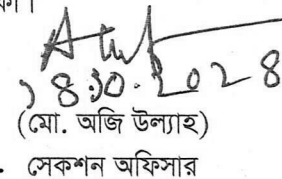 ১৪.১০.২০২৪
(মো. অজি উল্যাহ)
সেকশন অফিসার